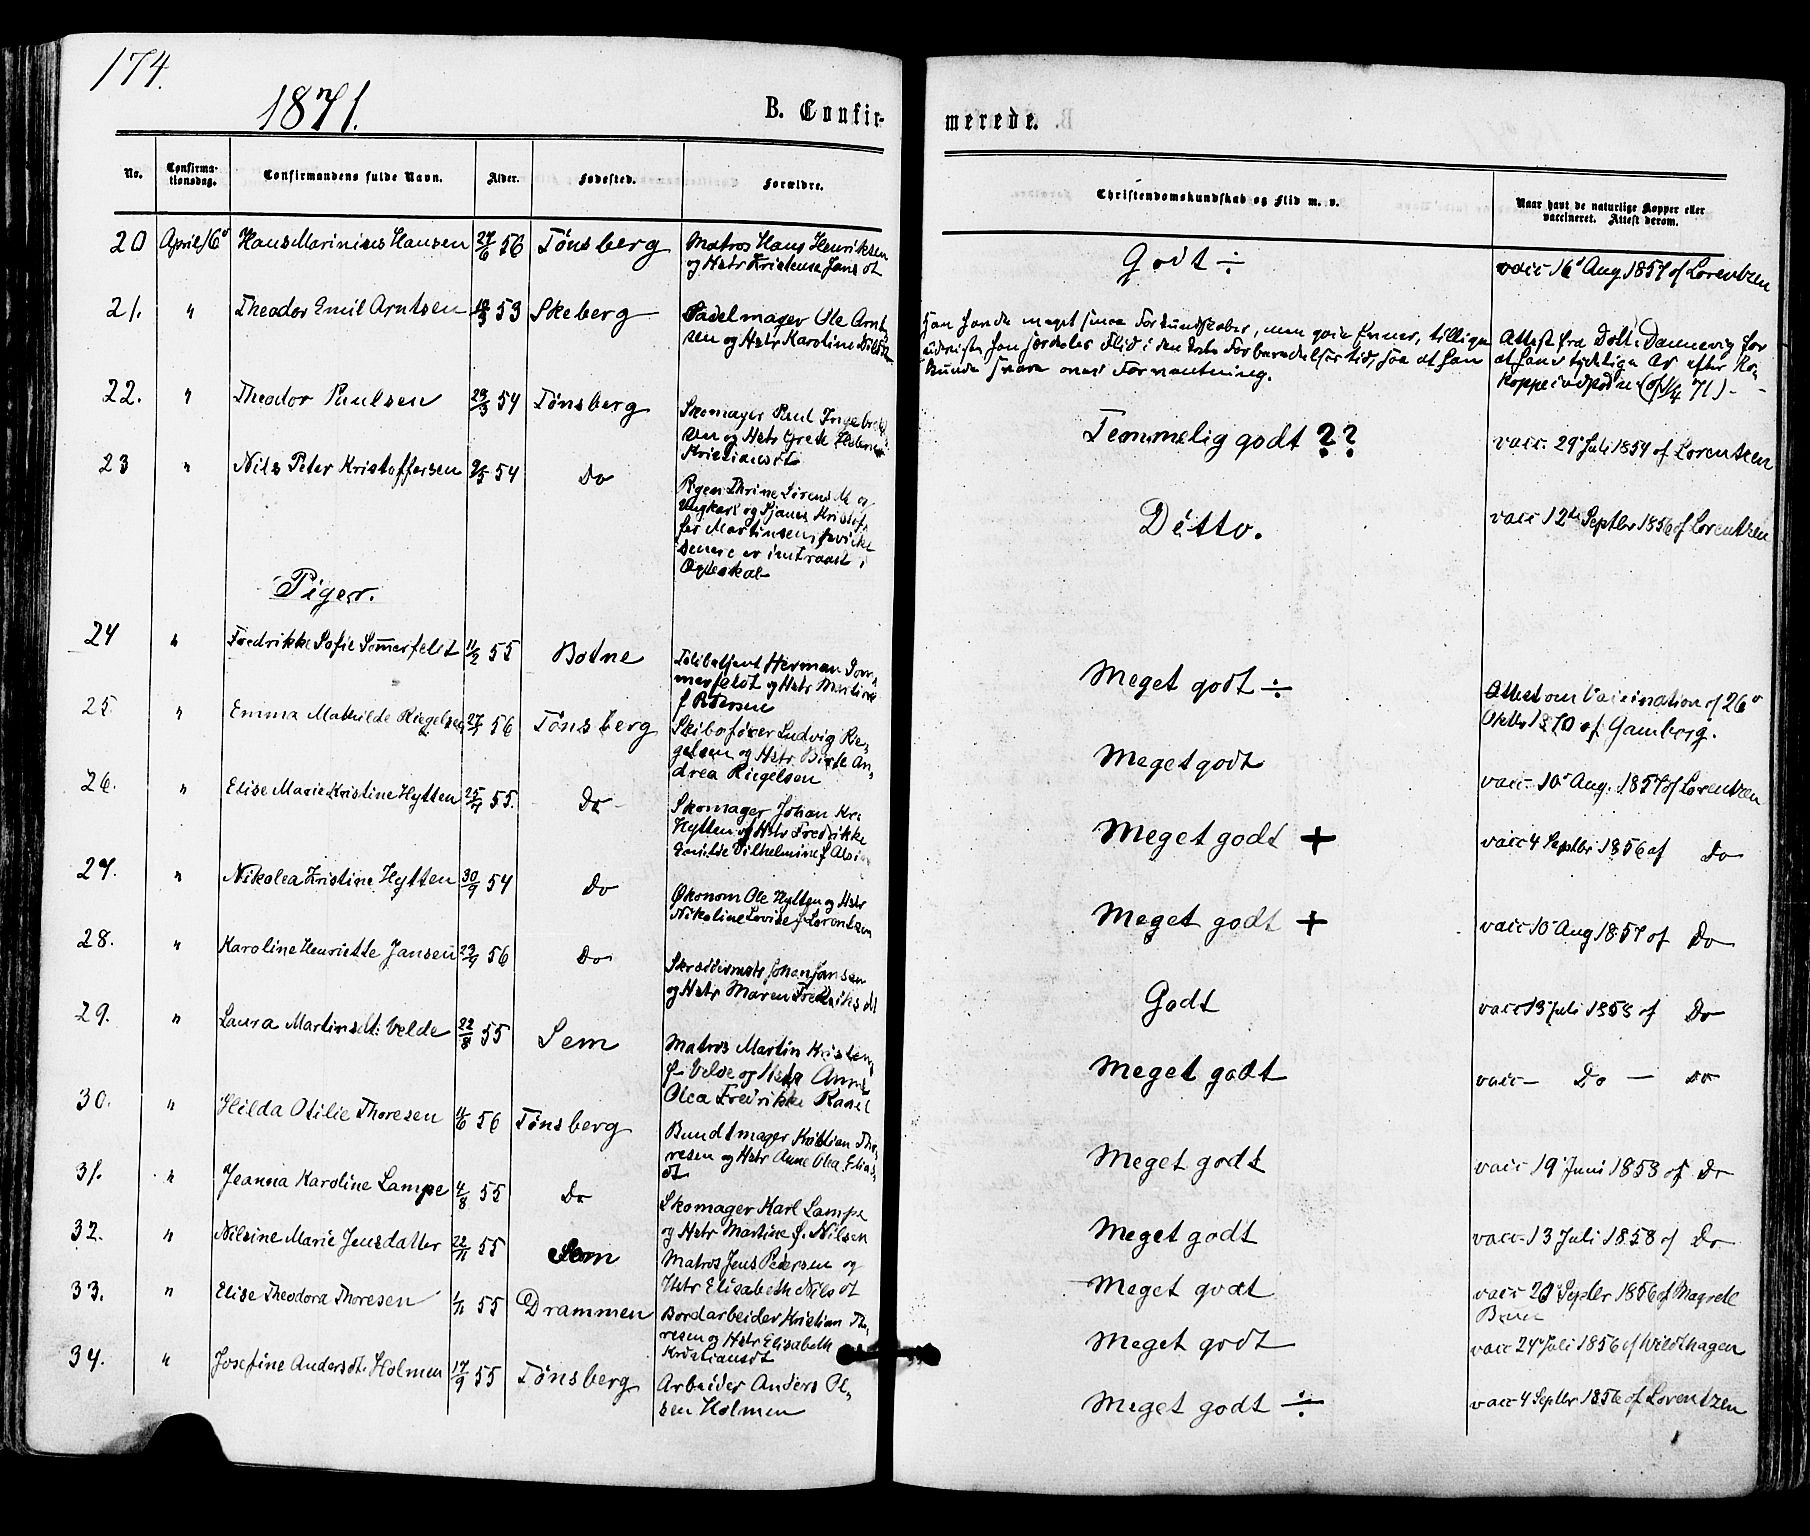 174.
1871.
B. Confirmerede.
No. Confirmationsdag. Confirmandens fulde Navn. Alder. Fødested. Forældre. Christendomskundskab og Flid m. v. Naar havt de naturlige Kopper eller vaccineret. Attest derom.
20 April 16d Hans Marinius Hansen 27/6 56 Tønsberg Matros Hans Henriksen
og Hstr Kristense Jans dt
Godt ÷
vacc 16d Aug 1857 of Lorentzen
21. " Theodor Emil Arntsen 53 Skeberg Sadelmager Ole Arnt
sen og Hstr Karoline Nilsdtr
Han havde meget smaa Forkundskaber, men gode Evner, tillige
udviste han særdeles Flid i den Forberedelsestid, saa at han
kunde svare over Forventning.
Attest fra Dokt. Dannevig for
at have tydelige Ar efter Ko-
koppeindpoden (of 1/4 71) -
22. " Theodor Paulsen 29/3 54 Tønsberg Skomager Paul Ingebrigt
sen og Hstr Grete Helene
Kristiansdt
Temmelig godt ??
vacc. 29 Juli 1854 of Lorentzen
23 " Nils Peter Kristoffersen 9/5 54 Do Pigen Thrine Sørens dt og
Ungkarl og Tjener Kristof
fer Martinsen, hvilke
senere er indtraadt i
Egteskab
Ditto.
vacc 12te Septbr 1856 of Lorentzen
Piger.
24 " Fredrikke Sofie Somerfelt 11/2 55 Botne Toldbetjent Herman Som
merfeldt og Hstr Martine
f Petersen
Meget godt ÷
Attest om Vaccination of 26d
Oktbr 1870 of Gamborg.
25 " Emma Mathilde Riegelsen 56 Tønsberg Skibsfører Ludvig Rie-
gelsen og Hstr. Birte An-
drea Riegelsen
Meget godt
vacc. 10d Aug. 1857 of Lorentzen
26. " Elise Marie Kristine Hytten 55. Do Skomager Johan Kr.
Hytten og Hstr Fredrikke
Emilie Vilhelmine f
Meget godt +
vacc 4 Septbr 1856 of Do
27. " Nikolea Kristine Hytten 30/9 54 Do Økonom Ole Hytten og Hstr
Nikoline Lovise f Lorentzen
Meget godt +
vacc 10 Aug 1857 of Do
28. " Karoline Henriette Jansen 56 Do Skreddermstr Johan Jansen
og Hstr Maren Fredriks dt
Godt
vacc 13 Juli 1858 of Do
29. " Laura Martinsdt. Velde 22/8 55 Sem Matros Martin Kristen
f- Velde og Hstr Anne
Olea Fredrikke
Meget godt
vacc - Do - Do
30. " Hilda Otilie Thoresen 56 Tønsberg Bundtmager Kristian Tho-
resen og Hstr Anne Olea Elias
dt
Meget godt
vacc 19 Juni 1858 of Do
31. " Jeanna Karoline Lampe 4/8 55 Do Skomager Karl Lampe
og Hstr Martine f. Nilsen
Meget godt
vacc. 13 Juli 1858 of Do
32. " Nilsine Marie Jensdatter 22/11 55 Sem Matros Jens Pedersen og
Hstr Elisabeth Nils dt
Meget godt
vacc 20 Septbr 1856 of Magrete
33. " Elise Theodora Thoresen 1/11 55 Drammen Bordarbeider Kristian Tho-
resen og Hstr Elisabeth
Kristiansdt
Meget godt
vacc 24 Juli 1856 of Wildthagen
34. " Josefine Andersdt. Holmen 17/9 55 Tønsberg Arbeider Anders Ol-
sen Holmen
Meget godt ÷
vacc 4 Septbr 1856 of Lorentzen